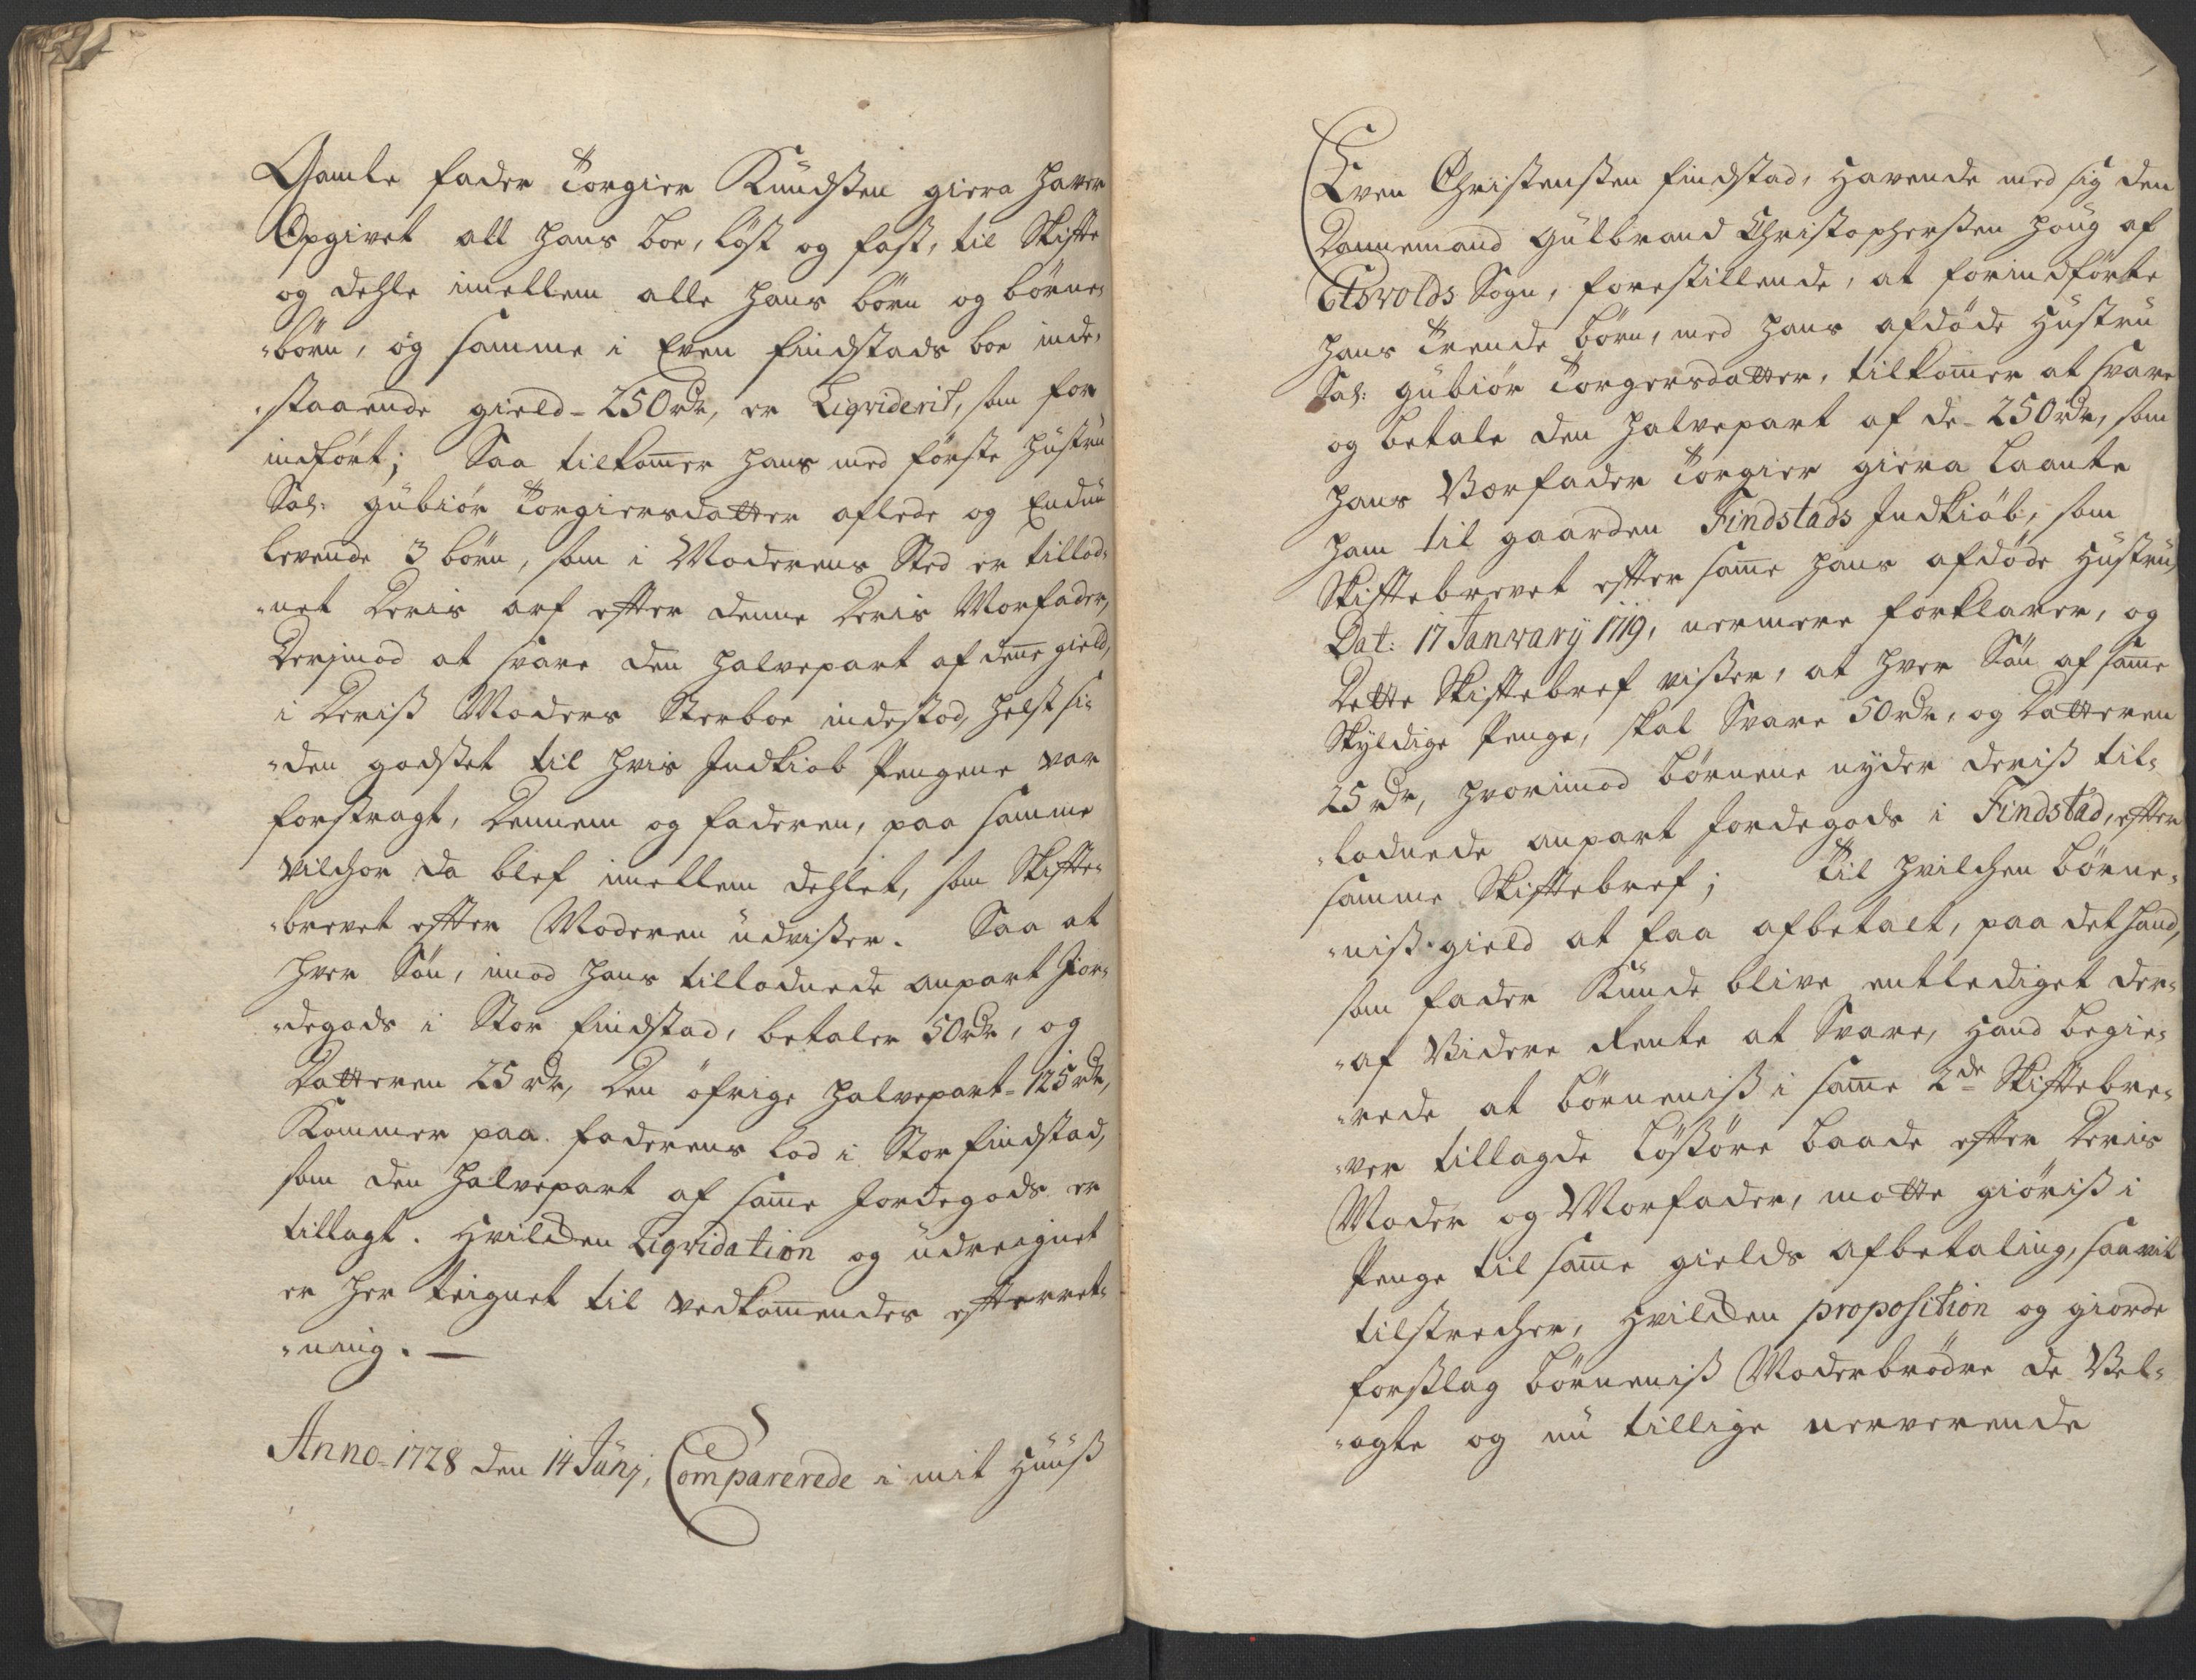 Gamle fader Torgier Knudssen Giera haver
Opgivet all hans boe, löst og fast, til Skifte
og dehle imellem alle hans börn og börne-
börn, og samme i Even Findstads boe inde-
staaende gield - 250 rdr, er Liqviderit, som for
indfört; Saa tilkom̄er hans med förste Hustru
Sal: Gubiör Torgiersdatter aflede og Endnu
levende 3 börn, som i Moderens Sted er tillod-
net Deris arf efter denne Deris Morfader,
Derimod at svare den halvepart af den̄e gield,
i Deriss Moders Sterboe indestod, helst si-
den godset til hvis Indkiöb Pengene var
forstragt, Dennem og faderen, paa samme
vilchor da blef imellem dehlet, som Skifte-
brevet effter Moderen udvisser. Saa at
hver Sön, imod hans tillodnede anpart Jor-
degods i Stor Findstad, betaler 50 rdr, og
Datteren 25 rdr, Den öfrige halvepart - 125 rdr,
Kommer paa faderens lod i Stor Findstad,
som den halvepart af sam̄e Jordegods er
tillagt. Hvilcken Liqvidation og udreignet
er her teignet til vedkom̄endes efterret-
ning. —
Anno 1728 den 14 Junj, Comparerede i mit Huuss
Even Christenssen Findstad, Havende med sig den
Dannemand Gulbrand Christopherssen Houg af
Eidsvolds Sogn, forestillende, at forindförte
hans Trende börn, med hans afdöde Hustru
Sal: Gubiör Torgersdatter, tilkom̄er at svare
og betale den halvepart af de - 250 rdr, som
hans Værfader Torgier Giera laante
ham til gaarden Findstads Indkiöb, som
Skifftebrevet effter sam̄e hans afdöde Hustru,
Dat: 17 Janvarij 1719, nermere forklarer, og
Dette Skiftebref visser, at hver Sön af sam̄e
Skyldige Penge, skal Svare 50 rdr, og Datteren
25 rdr, hvorimod börnene nyder deriss til-
lodnede anpart Jordegods i Findstad, effter
samme Skifftebref; Til hvilchen börne-
niss gield at faa afbetalt, paa det hand,
som fader Kunde blive entlediget der-
af Videre Rente at Svare, Hand begie-
rede at börneniss i sam̄e 2de Skifftebre-
ver tillagde lössöre baade effter Deris
Moder og Morfader, motte giöriss i
Penge til sam̄e gields afbetaling, saavit
tilstrecher, Hvilcken proposition og giorde
forslag börneniss Moderbrödre de Vel-
agte og nu tillige nerverende